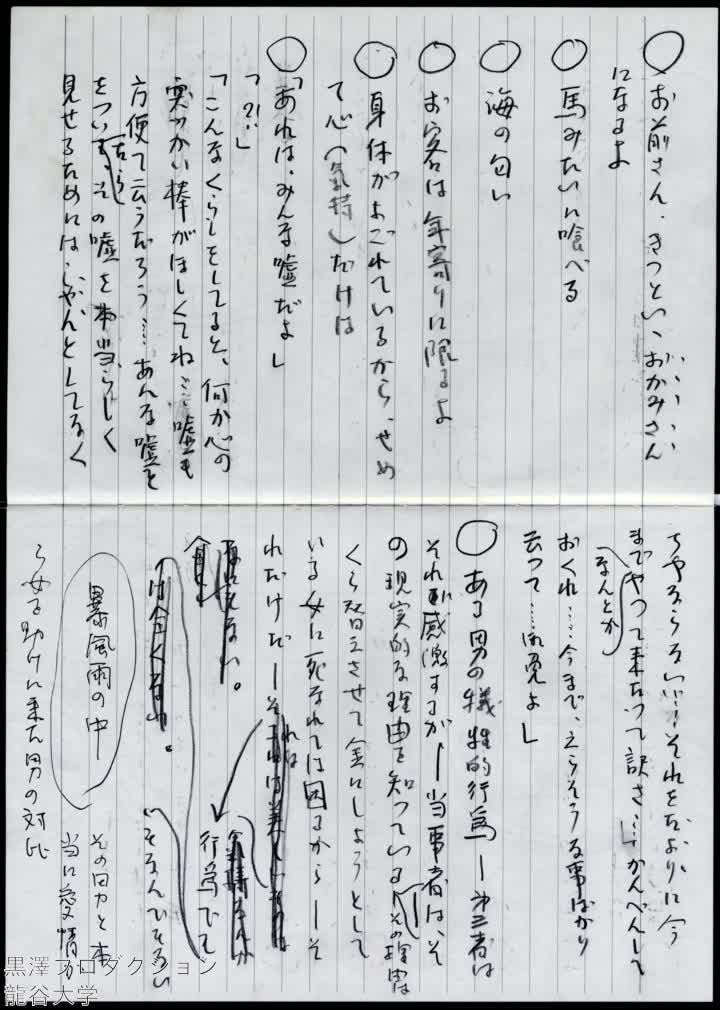 ○お前さん、きつといゝおかみさん
になるよ
○馬みたいに喰べる
○海の匂い
○お客は年寄りに限るよ
○身体がよごれているから、せめ
て心(気持)だけは
○「あれは、みんな嘘だよ」
「?!」
「こんなくらしをしてると、何か心の
突つかい棒がほしくてね……嘘も
方便て云うだろう……あんな嘘を
をついたらその嘘を本当らしく
見せるためには、しやんとしてなく
ちやならない……それをたよりに今
までやつて来たつて訳さ……」かんべんして
なんとか
おくれ……今まで、えらそうな事ばかり
云つて……御免よ」
○ある男の犠牲的行為ー第三者は
それに感激するがー当事者は、そ
の現実的な理由を知つているーその理由は
くら替えさせて金にしようとして
いる女に死なれては困るからーそ
れだけだーそれは
行為でて
いそなんでもない
暴風雨の中
その男と本
当に愛情か
ら女を助けに来た男の対比
黒澤プロダクション
龍谷大学